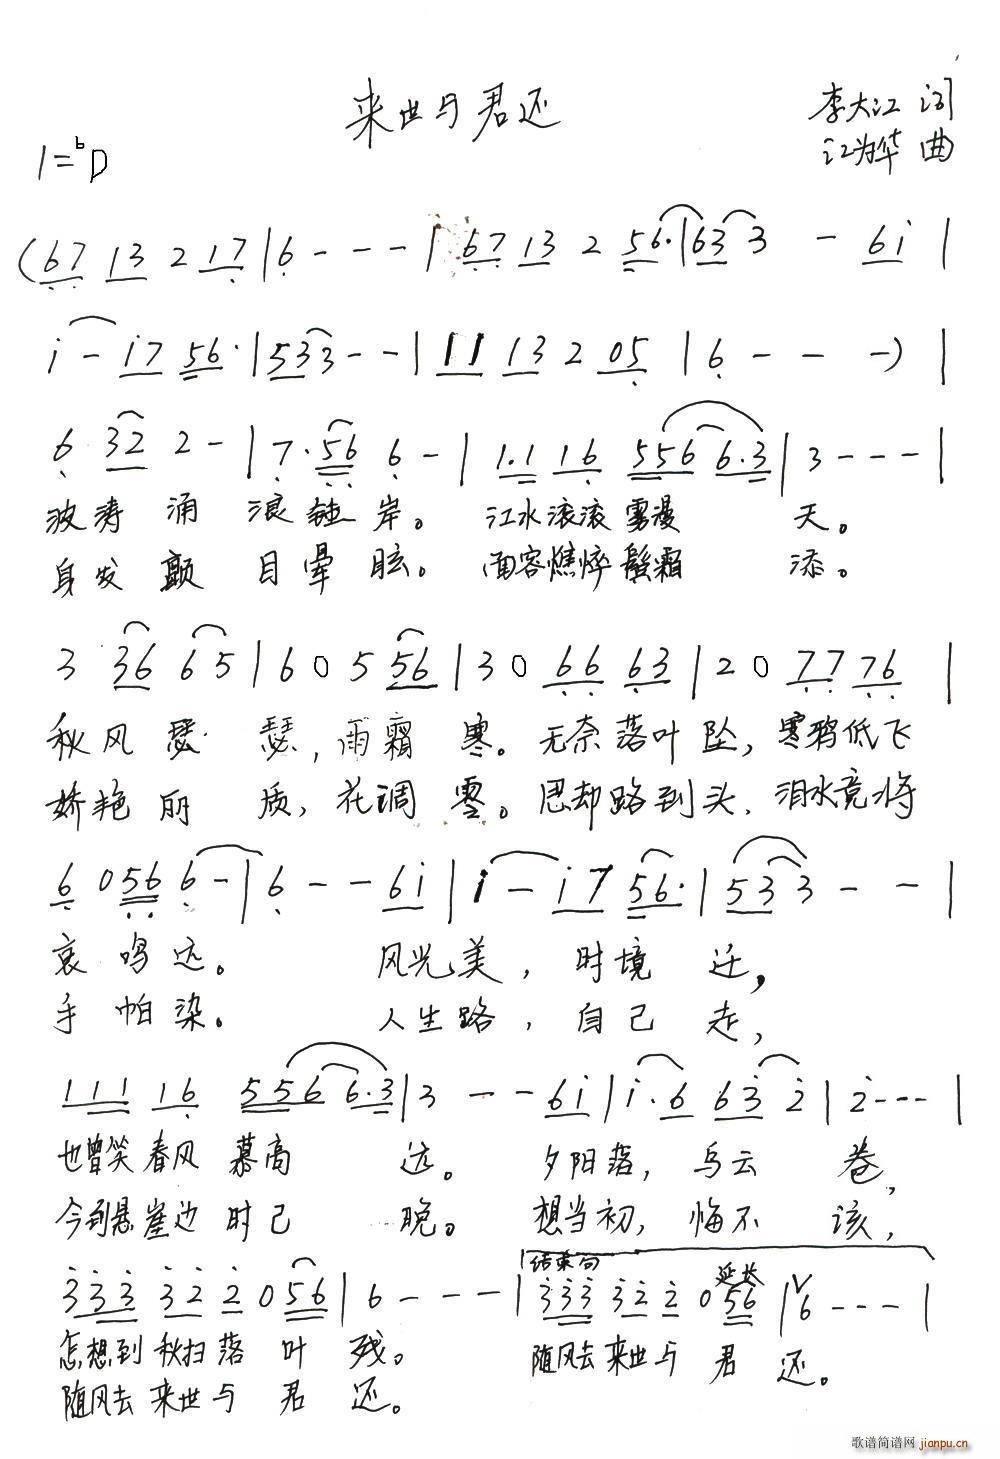 来世与君还
李大江 词
1=♭D
江为华 曲
(67 13 2 17 | 6 - - - | 67 13 2 56· | 633 - 6i |
i - i7 56· | 533 - - | 11 13 2 05 | 6 - - -) |
6 32 2 - | 7·56 6 - | 1·1 16 556 6·3 | 3 - - - |
波涛 涌 浪 岸。 江水滚滚 雾漫 天。
身发 颤 目晕 眩。 面容憔悴 鬓霜 添。
3 36 65 | 6 0 5 56 | 3 0 66 63 | 2 0 77 76 |
秋风 瑟 瑟, 雨霜 寒。 无奈落叶 坠, 寒鸦低飞
娇艳 丽 质, 花调 零。 思却路到头, 泪水竟将
6 0 56 6 - | 6 - - 6i | i - i7 56· | 533 - - |
哀 鸣 远。 风光美, 时境 迁,
手 帕 染。 人生路, 自己 走,
111 16 556 6·3 | 3 - - 6i | i·6 63 2 | 2 - - - |
也曾笑 春风 慕高 远。 夕阳落, 乌云 卷,
今到悬崖边 时已 晚。 想当初, 悔不 该,
结束句 延长
333 32 2 0 56 | 6 - - - | 333 32 2 0 56 | 6 - - - |
怎想到 秋扫落 叶 残。 随风去 来世与 君 还。
随风去 来世与 君 还。
歌谱简谱网 jianpu.cn